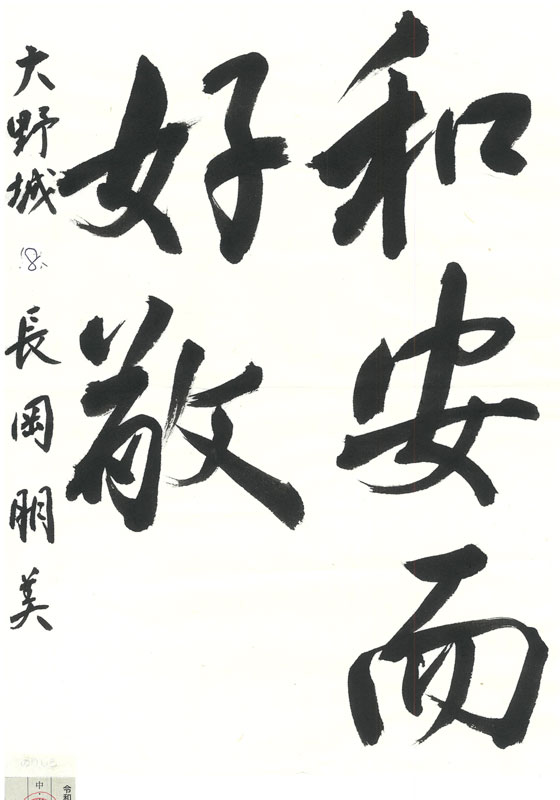 和安而
好敬
大野城 8 長岡明美
中
令和